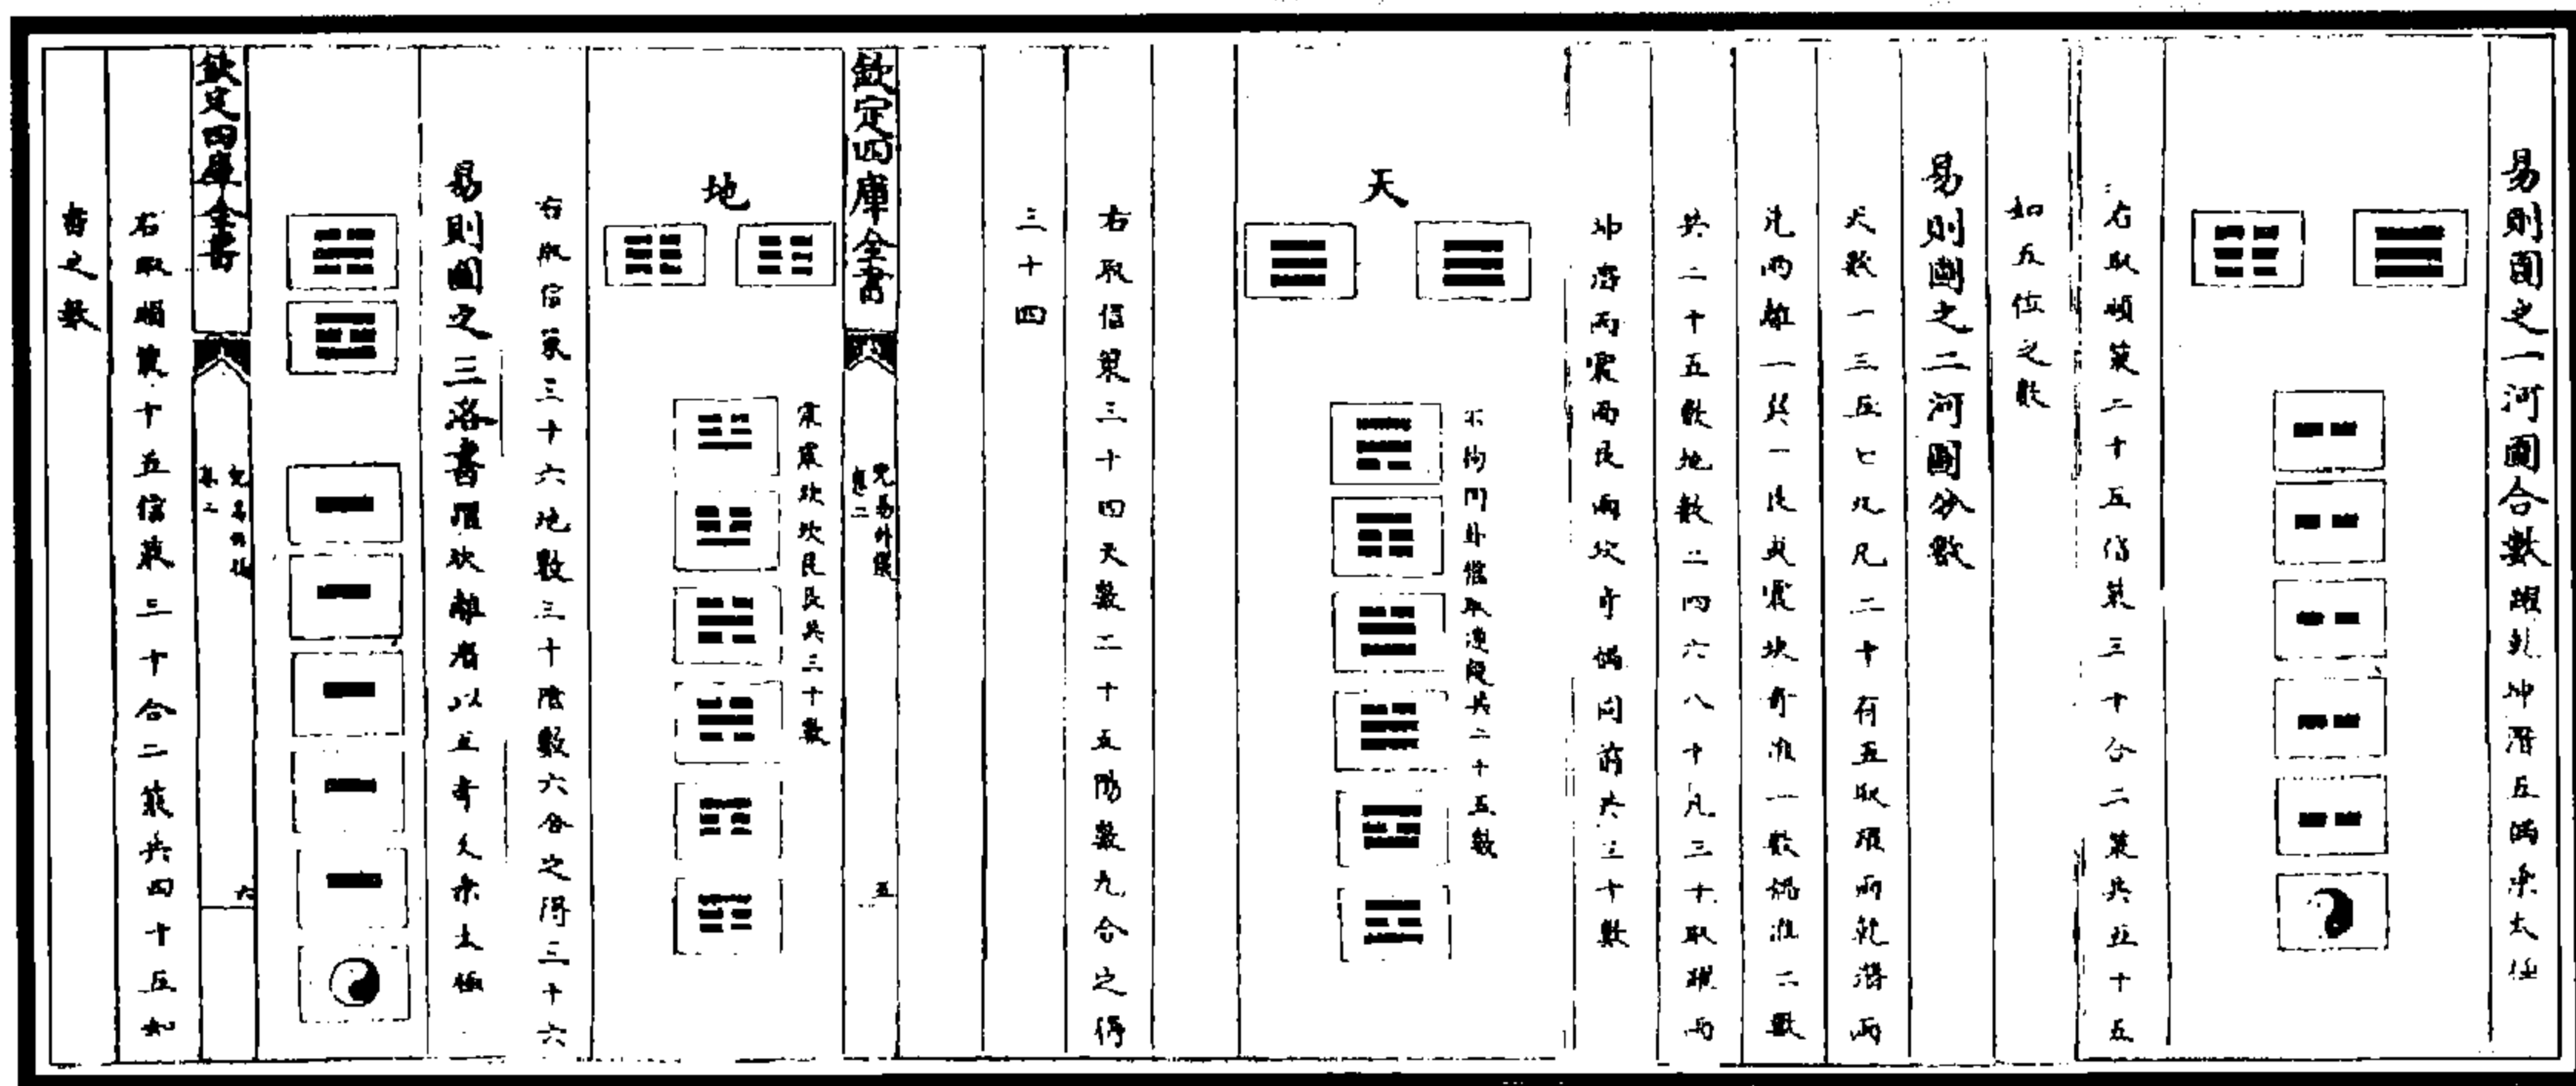 易則圖之一河圖合數躍乾坤潛五偶乘太極
右取順策二十五信策三十合二策共五十五
如五位之數
易則圖之二河圖分數
天數一三五七九凡二十有五取躍兩乾潛兩
兌兩離一巽一艮或震坎奇准一數偶准二數
共二十五數地數二四六八十凡三十取躍兩
坤潛兩震兩艮兩坎奇偶同前共三十數
天
不拘間卦惟取潛躍共二十五數
右取信策三十四天數二十五陽數九合之得
三十四
欽定四庫全書
兒易外儀
卷二
五
地
震震坎坎艮艮共三十數
右取信策三十六地數三十陰數六合之得三十六
易則圖之三洛書躍坎離潛以五奇乂乘太極
欽定四庫全書
兒易外儀
卷二
六
右取順策十五信策三十合二策共四十五如
書之數